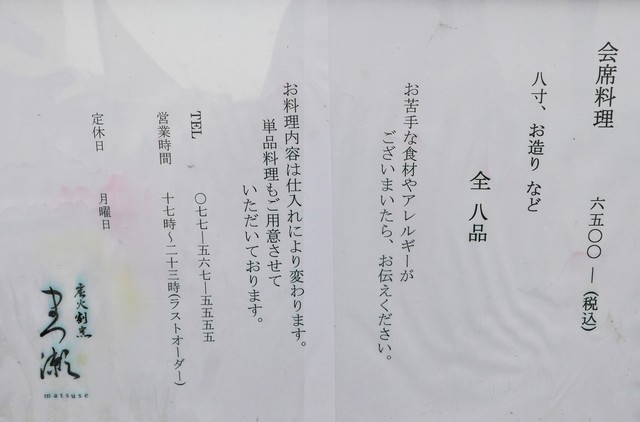 会席料理 六五〇〇―(税込)
八寸、お造り など
全 八品
お苦手な食材やアレルギーが
ございまいたら、お伝えください。
お料理内容は仕入れにより変わります。
単品料理もご用意させて
いただいております。
TEL 〇七七―五六七―五五五五
営業時間 十七時～二十三時(ラストオーダー)
定休日 月曜日
炭火割烹
まつ瀬
matsuse